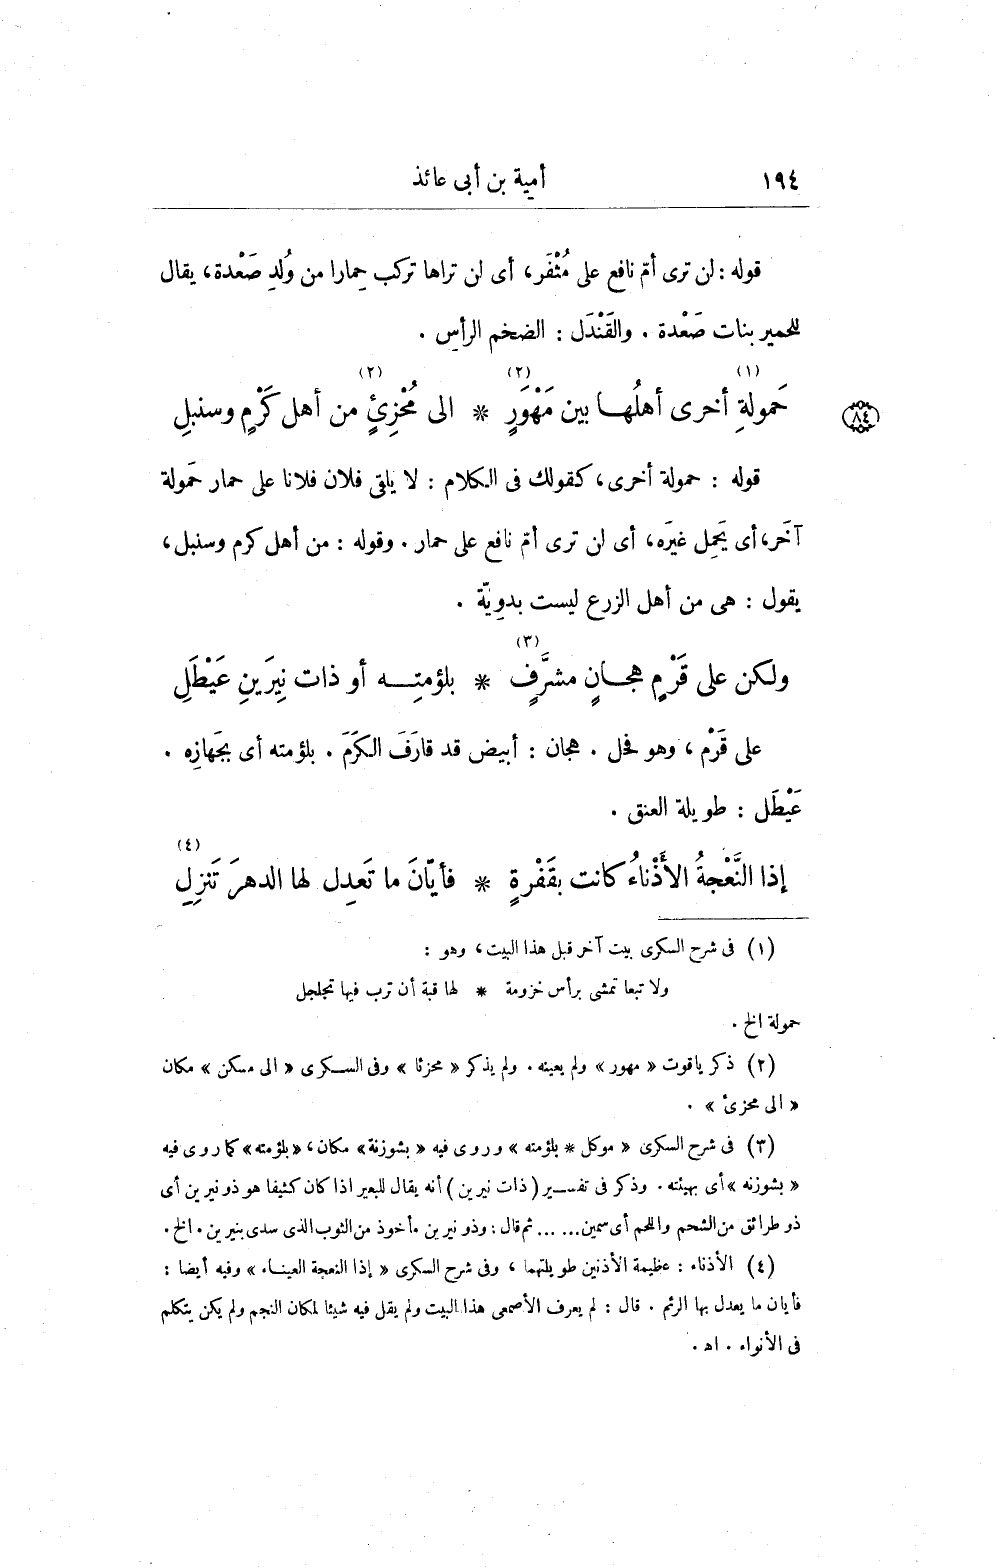 ١٩٤ أمية بن أبى عائذ
قوله : لن ترى أمّ نافع على مُثْفَر، أى لن تراها تركب حِمارا من وُلدِ صَعْدة، يقال
للحمير بنات صَعْدة . والقَنْدَل : الضخم الرأس .
حَمولةِ (١) أخرى أهلُها بين مَهْوَرٍ (٢) * الى مُخْزِئٍ (٢) من أهل كَرْمٍ وسنبلِ
(٨٤)
قوله : حمولة أخرى، كقولك فى الكلام : لا يلقى فلان فلانا على حمار حَمولة
آخَر، أى يَحمِل غيرَه، أى لن ترى أمّ نافع على حمار . وقوله : من أهل كرم وسنبل،
يقول : هى من أهل الزرع ليست بدوِيّة .
ولكن على قَرْمٍ هجانٍ مشرَّفٍ (٣) * بلؤمتِه أو ذات نِيرَينِ عَيْطَلِ
على قَرْم ، وهو فحل . هجان : أبيض قد قارَفَ الكَرَمَ . بلؤمته أى بجَهازِه .
عَيْطَل : طويلة العنق .
إذا النَّعْجةُ الأَذْناءُ كانت بقَفْرةٍ * فأيّانَ ما تَعدِل لها الدهرَ تَنزِلِ (٤)
(١) فى شرح السكرى بيت آخر قبل هذا البيت، وهو :
ولا تبعا تمشى برأس خزومة * لها قبة أن ترب فيها تجلجل
حمولة الخ .
(٢) ذكر ياقوت « مهور » ولم يعينه . ولم يذكر « مخزئا » وفى السكرى « الى مسكن » مكان
« الى مخزئ » .
(٣) فى شرح السكرى « موكل * بلؤمته » وروى فيه « بشوزنة» مكان، «بلؤمته» كما روى فيه
« بشوزنه »أى بهيئته . وذكر فى تفسير (ذات نيرين) أنه يقال للبعير اذا كان كثيفا هو ذو نيرين أى
ذو طرائق من الشحم واللحم أى سمين... ... ثم قال : وذو نيرين مأخوذ من الثوب الذى سدى بنيرين . الخ .
(٤) الأذناء : عظيمة الأذنين طويلتهما ، وفى شرح السكرى « إذا النعجة العيناء » وفيه أيضا :
فأيان ما يعدل بها الرئم . قال : لم يعرف الأصمعى هذا البيت ولم يقل فيه شيئا لمكان النجم ولم يكن يتكلم
فى الأنواء . اه .